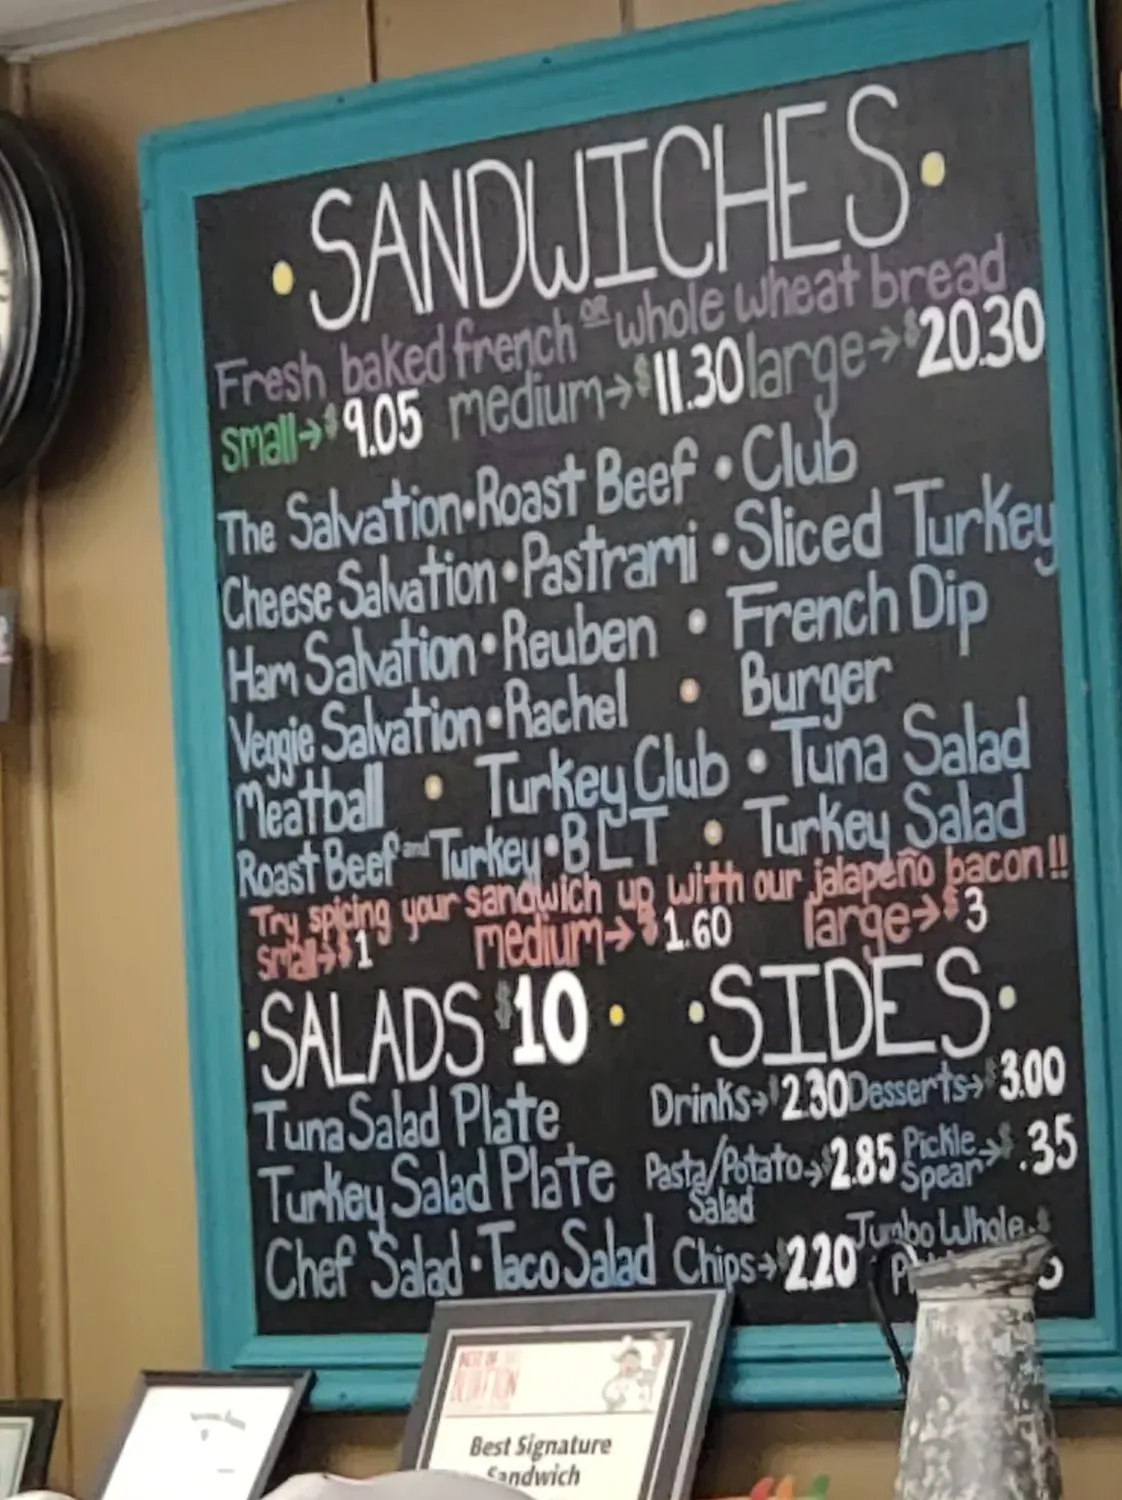 • SANDWICHES •
Fresh baked french OR whole wheat bread
small→$9.05 medium→$11.30 large→$20.30
The Salvation • Roast Beef • Club
Cheese Salvation • Pastrami • Sliced Turkey
Ham Salvation • Reuben • French Dip
Veggie Salvation • Rachel • Burger
Meatball • Turkey Club • Tuna Salad
Roast Beef and Turkey • BLT • Turkey Salad
Try spicing your sandwich up with our jalapeño bacon!!
small→$1 medium→$1.60 large→$3
• SALADS $10 •
Tuna Salad Plate
Turkey Salad Plate
Chef Salad • Taco Salad
• SIDES •
Drinks→$2.30 Desserts→$3.00
Pasta/Potato Salad→$2.85 Pickle Spear→$.35
Chips→$2.20 Jumbo Whole
BEST OF
Best Signature
Sandwich